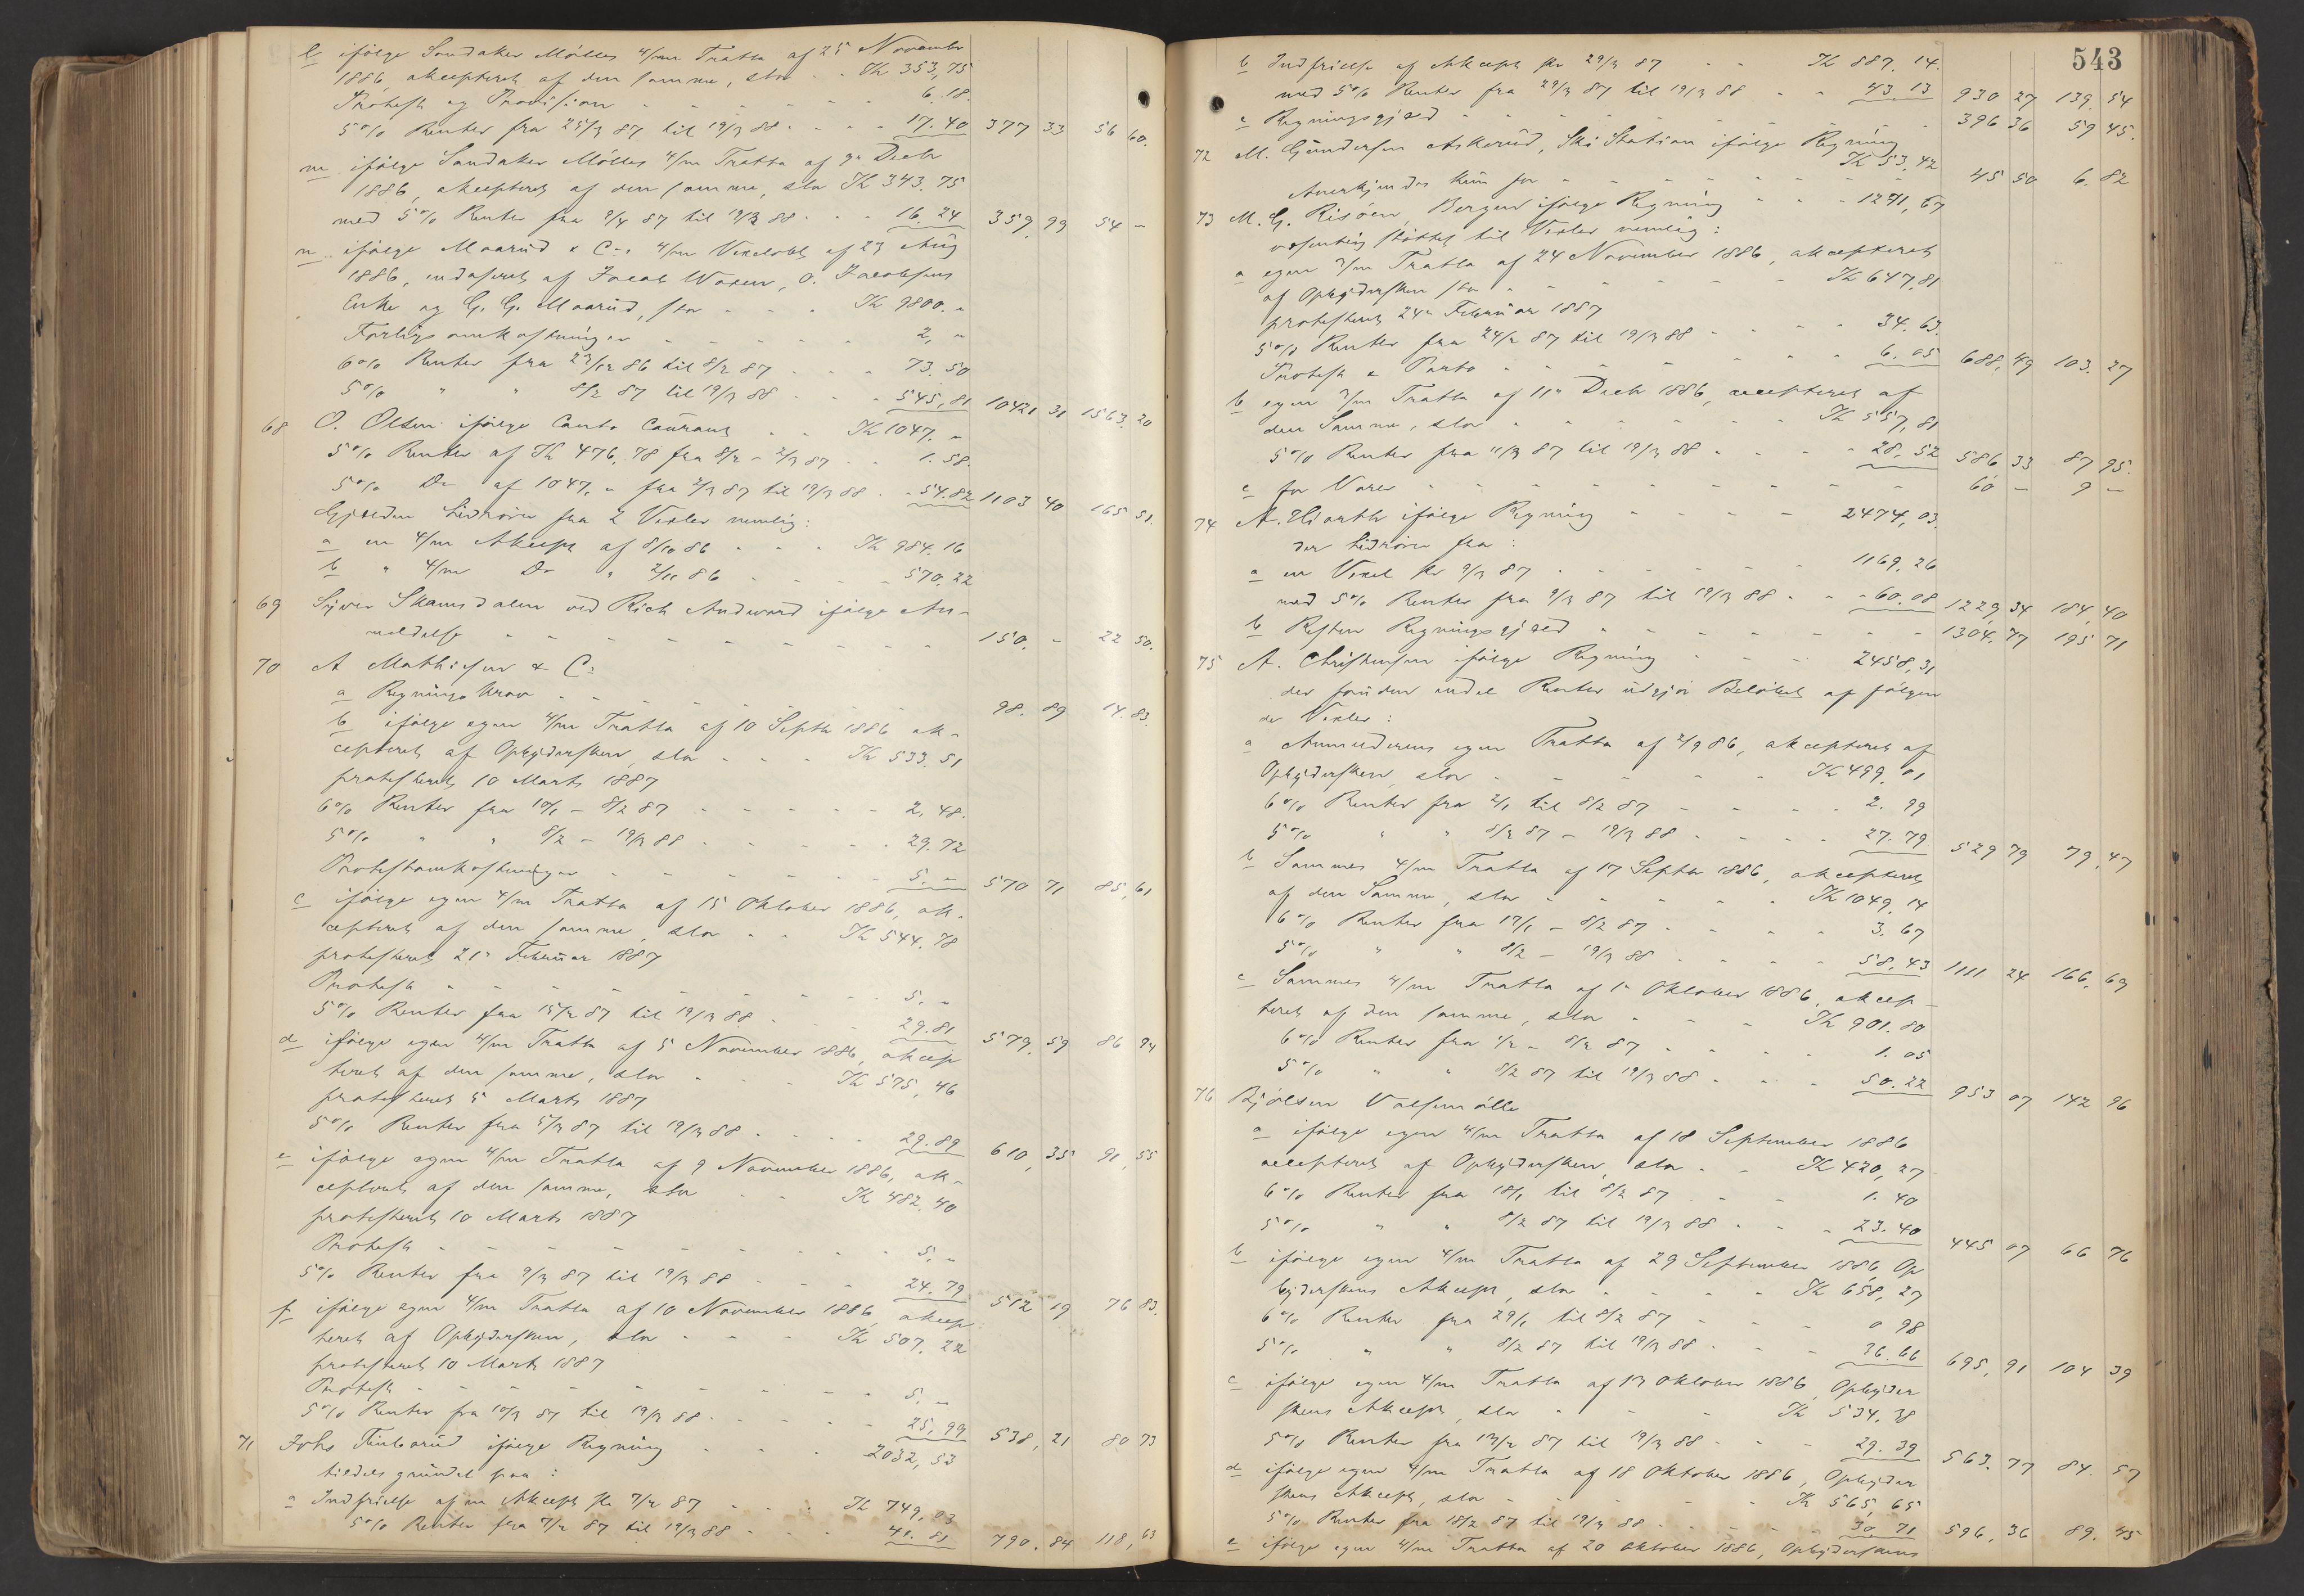 l ifölge Sandaker Mölles 4/mn Tratta af 25 November
1886, akcepteret af den samme, stor - - Kr 353,75
Protest og Provision - - - - - 6.18.
5% Renter fra 25/3 87 til 19/3 88 - - - 17.40 377 33 56 60.
m ifölge Sandaker Mölles 4/mn Tratta af 9n Decbr
1886, akcepteret af den samme, stor Kr 343.75
med 5% Renter fra 9/4 87 til 19/3 88 - - - 16.24 359,99 54 -
n ifölge Maarud & Co:s 4/mn Vexelobl. af 23 Aug
1886, endosseret af Jacob Woxen, O. Jacobsens
Enke og G. G. Maarud, stor - - - Kr 9800.-
Forligsomkostninger - - - - - 2,-
6% Renter fra 23/12 86 til 8/2 87 - - - 73.50
5% " " 8/2 87 til 19/3 88 - - - 545,81 10421 31 1563.20
68 O. Olsen ifölge Conto Courant - - Kr 1047.-
5% Renter af Kr 476,78 fra 8/2 - 2/3 87 - - 1.58.
5% Do af 1047,- fra 2/3 87 til 19/3 88 - - 54.82 1103 40 165 51.
Gjælden hidrörer fra 2 Vexler nemlig:
a en 4/mn Akcept af 8/10 86 - - - Kr 984.16
b " 4/mn Do " 2/11 86 - - - - 570.22
69 Syver Skamsdalen ved Rich Andvord ifölge An-
meldelse - - - - - - - - 150.- 22 50.
70 A Mathisen & Co
a Regningskrav - - - - - - - 98.89 14.83.
b ifölge egen 4/mn Tratta af 10 Septbr 1886 ak-
cepteret af Opbydersken, stor - - - Kr 533.51
protesteret 10 Marts 1887
6% Renter fra 10/1 - 8/2 87 - - - - - 2,48.
5% " " 8/2 - 19/3 88 - - - - - 29.72
Protestomkostninger - - - - - - 5.- 570 71 85,61
c ifölge egen 4/mn Tratta af 15 Oktober 1886, ak-
cepteret af den samme, stor - - Kr 544.78
protesteret 21n Februar 1887
Protest - - - - - - - - 5.-
5% Renter fra 15/2 87 til 19/3 88 - - - 29.81 579,59 86 94
d ifölge egen 4/mn Tratta af 5 November 1886, akcep
teret af den samme, stor - - - Kr 575,46
protesteret 5 Marts 1887
5% Renter fra 5/3 87 til 19/3 88 - - - - 29.89 610,35 91,55
e ifölge egen 4/mn Tratta af 9 November 1886, ak-
cepteret af den samme, stor - - Kr 482.40
protesteret 10 Marts 1887
Protest - - - - - - - - 5.-
5% Renter fra 9/3 87 til 19/3 88 - - - 24.79 512 19 76 83.
f ifölge egen 4/mn Tratta af 10 November 1886, akcep
teret af Opbydersken, stor - - - Kr 507.22
protesteret 10 Marts 1887
Protest - - - - - - - - 5.-
5% Renter fra 10/3 87 til 19/3 88 - - - - 25,99 538,21 80 73
71 Johs ifölge Regning - - - 2032,53
tildels grundet paa:
a Indfrielse af en Akcept pr 7/2 87 - - - Kr 749,03
5% Renter fra 7/2 87 til 19/3 88 - - - - 41.81 790.84 118,63
543
b Indfrielse af Akcept pr 29/3 87 - - Kr 887.14.
med 5% Renter fra 29/3 87 til 19/3 88 - - 43.13 930 27 139.54
c Regningsgjæld - - - - - - - 396 36 59 45.
72 M. Gundersen Askerud, Ski Station ifölge Regning
Kr 53.42
Anerkjendes kun for - - - - - - 45 50 6.82
73 M. G. Risöen, Bergen ifölge Regning - - - 1291,67
væsentlig stöttet til Vexler nemlig:
a egen 3/mn Tratta af 24 November 1886, akcepteret
af Opbydersken stor - - - - - - Kr 647,81
protesteret 24n Februar 1887
5% Renter fra 24/2 87 til 19/3 88 - - - - 34.63.
Protest & Porto - - - - - - - 6.05 688,49 103.27
b egen 3/mn Tratta af 11n Decbr 1886, accepteret af
den Samme, stor - - - - - - Kr 557,81
5% Renter fra 11/3 87 til 19/3 88 - - - - 28,52 586 33 87 95.
c for Varer - - - - - - - - 60 - 9 -
74 A. Hiorth ifölge Regning - - - - 2474,03.
der hidrörer fra:
a en Vexel pr 9/3 87 - - - - - - 1169.26
med 5% Renter fra 9/3 87 til 19/3 88 - - - 60.08 1229,34 184,40
b Resten Regningsgjæld - - - - - - 1304.77 195 71
75 A. Christensen ifölge Regning - - - 2458,31
der foruden endel Renter udgjör Belöbet af fölgen
de Vexler:
a Anmelderens egen Tratta af 2/9 86, akcepteret af
Opbydersken, stor - - - - - Kr 499,01
6% Renter fra 2/1 til 8/2 87 - - - - - 2.99
5% " " 8/2 87 - 19/3 88 - - - - 27.79 529 79 79,47
b Sammes 4/mn Tratta af 17 Septbr 1886, akcepteret
af den Samme, stor - - - - - Kr 1049.14
6% Renter fra 17/1 - 8/2 87 - - - - - 3.67
5% " " 8/2 - 19/3 88 - - - - 58.43 1111 24 166,69
c Sammes 4/mn Tratta af 1n Oktober 1886, akcep-
teret af den samme, stor - - - Kr 901.80
6% Renter fra 1/2 - 8/2 87 - - - - - 1.05
5% " " 8/2 87 til 19/3 88 - - - 50.22 953 07 142 96
76 Bjölsen Valsemölle
a ifölge egen 4/mn Tratta af 18 September 1886
accepteret af Opbydersken, stor - - Kr 420,27
6% Renter fra 18/1 til 8/2 87 - - - 1.40
5% " " 8/2 87 til 19/3 88 - - - 23.40 445 07 66 76
b ifölge egen 4/mn Tratta af 29 September 1886 Op
byderskens Akcept, stor - - - - Kr 658,27
6% Renter fra 29/1 til 8/2 87 - - - - 0 98
5% " " 8/2 87 til 19/3 88 - - - 36.66 695,91 104 39
c ifölge egen 4/mn Tratta af 13 Oktober 1886, Opbyder
skens Akcept, stor - - - - Kr 534.38
5% Renter fra 13/2 87 til 19/3 88 - - - 29.39 563.77 84.57
d ifölge egen 4/mn Tratta af 18 Oktober 1886, Opbyder
skens Akcept, stor - - - - - Kr 565,65
5% Renter fra 18/2 87 til 19/3 88 - - - - 30,71 596,36 89.45
e ifölge egen 4/mn Tratta af 20 Oktober 1886, Opbyderskens